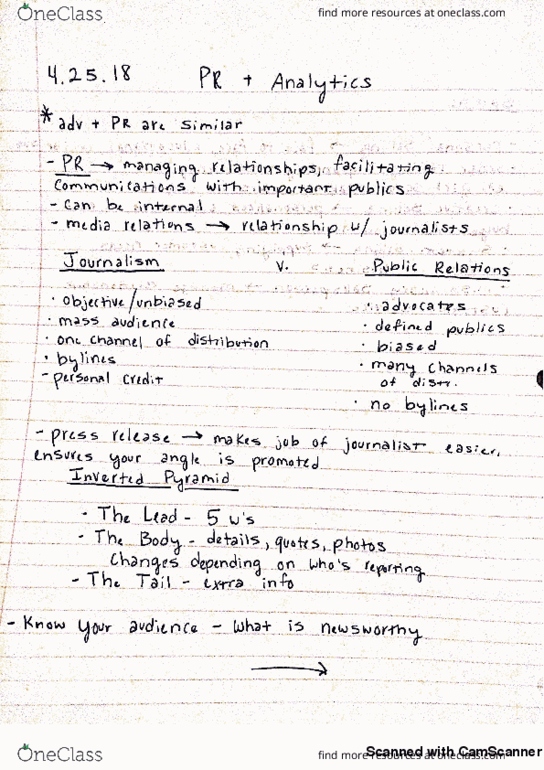 OneClass
find more resources at oneclass.com
4.25.18 PR + Analytics
* adv + PR are similar
- PR → managing relationships, facilitating
communications with important publics
- can be internal
- media relations → relationship w/ journalists
Journalism v. Public Relations
· objective/unbiased · advocates
· mass audience · defined publics
· one channel of distribution · biased
· bylines · many channels
- personal credit of distr.
· no bylines
- press release → makes job of journalist easier,
ensures your angle is promoted
Inverted Pyramid
· The Lead - 5 w's
· The Body - details, quotes, photos
changes depending on who's reporting
- The Tail - extra info
- Know your audience - what is newsworthy
→
OneClass
find more resources at oneclass.com
Scanned with CamScanner